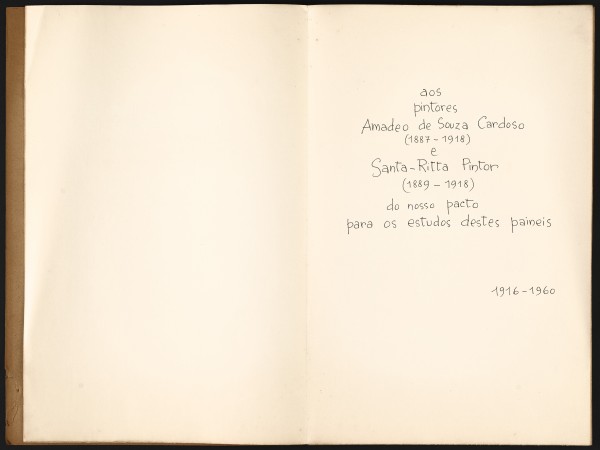 aos
pintores
Amadeo de Souza Cardoso
(1887-1918)
e
Santa-Ritta Pintor
(1889-1918)
do nosso pacto
para os estudos destes paineis
1916-1960